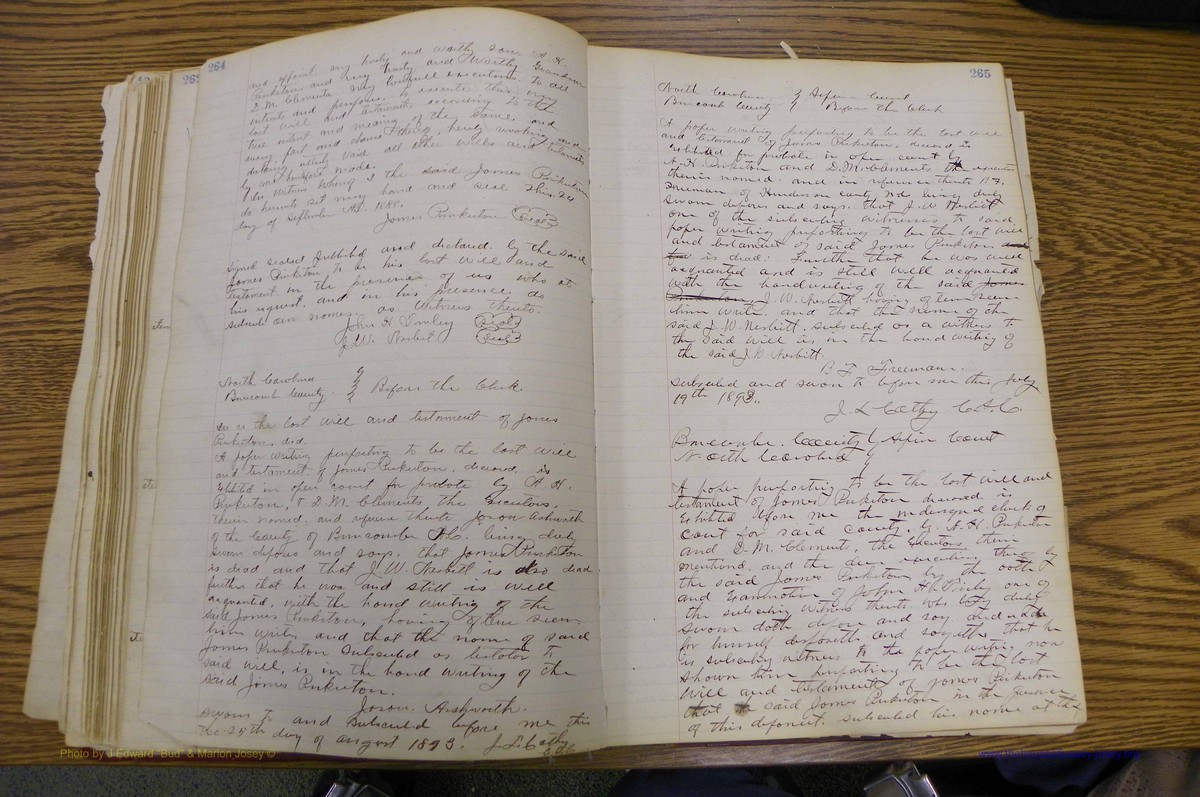 264
and appoint my lively and worthy son A. H.
Pinkerton and my lively and worthy Grandson
D. M. Clements my lawfull executors to all
intents and purposes to execute this my
last will and testament, according to the
true intent and meaning of the same and
every part and clause thereof, hereby revoking and
declaring utterly void all other wills and testaments
by me heretofore made.
In witness whereof I the said James Pinkerton
do hereunto set my hand and seal this 24
day of September AD. 1888.
James Pinkerton (Seal)
Signed sealed published and declared by the said
James Pinkerton to be his last will and
testament in the presence of us who at
his request and in his presence do
subscribe our names as witness thereto.
John H. (Seal)
J.W. Nesbitt (Seal)
North Carolina
Buncomb County } Before the Clerk.
In re the last will and testament of James
Pinkerton decd.
A paper writing purporting to be the last will
and testament of James Pinkerton, deceased, is
exhibited in open court for probate by A. H.
Pinkerton, & D. M. Clements the Executors,
therein named, and upon thereto Jason Ashworth
of the County of Buncombe N.C. being duly
sworn deposes and says, that James Pinkerton
is dead and that J. W. Nesbitt is also dead
further that he was and still is well
acquainted, with the hand writing of the
said James Pinkerton, having often seen
him write and that the name of said
James Pinkerton Subscribed as testator to
said will, is in the hand writing of the
said James Pinkerton.
Jason Ashworth.
Sworn to and Subscribed before me this
the 25th day of August 1893. J L Cathy
265
North Carolina } Superior Court
Buncomb County } Before the Clerk
A paper writing purporting to be the last will
and testament of James Pinkerton, deceased is
exhibited for probate in open court by
A. H. Pinkerton and D. M. Clements the executors
therein named. and in reference thereto B. F.
Freeman of Henderson county, N.C. being duly
sworn deposes and says, that J. W. Nesbitt
one of the subscribing witnesses to said
paper writing purporting to be the last will
and testament of said James Pinkerton
is dead: Further that he was well
acquainted and is still well acquainted
with the handwriting of the said James
Pinkerton, J. W. Nesbitt having often seen
him write, and that the name of the
said J. W. Nesbitt, subscribed as a witness to
the said will is in the hand writing of
the said J. W. Nesbitt.
B F Freeman.
Subscribed and sworn to before me this July
19th 1893.
J. L Cathy C.S.C.
Buncombe County } Superior Court
North Carolina }
A paper purporting to be the last will and
testament of James Pinkerton deceased is
Exhibited before me the undersigned clerk of
Court for said County, by A. H. Pinkerton
and D. M. Clements, the executors therein
mentioned, and the due execution thereof by
the said James Pinkerton by the oath &
examination of John H. one of
the subscribing witness thereto. who being duly
sworn doth depose and say and
for himself deposeth and sayeth that he
is subscribing witness to the paper writing now
shown him purporting to be the last
will and testament of James Pinkerton
that the said James Pinkerton in the presence
of this deponent, subscribed his name at the
Photo by J Edward "Bud" & Marion Josey ©